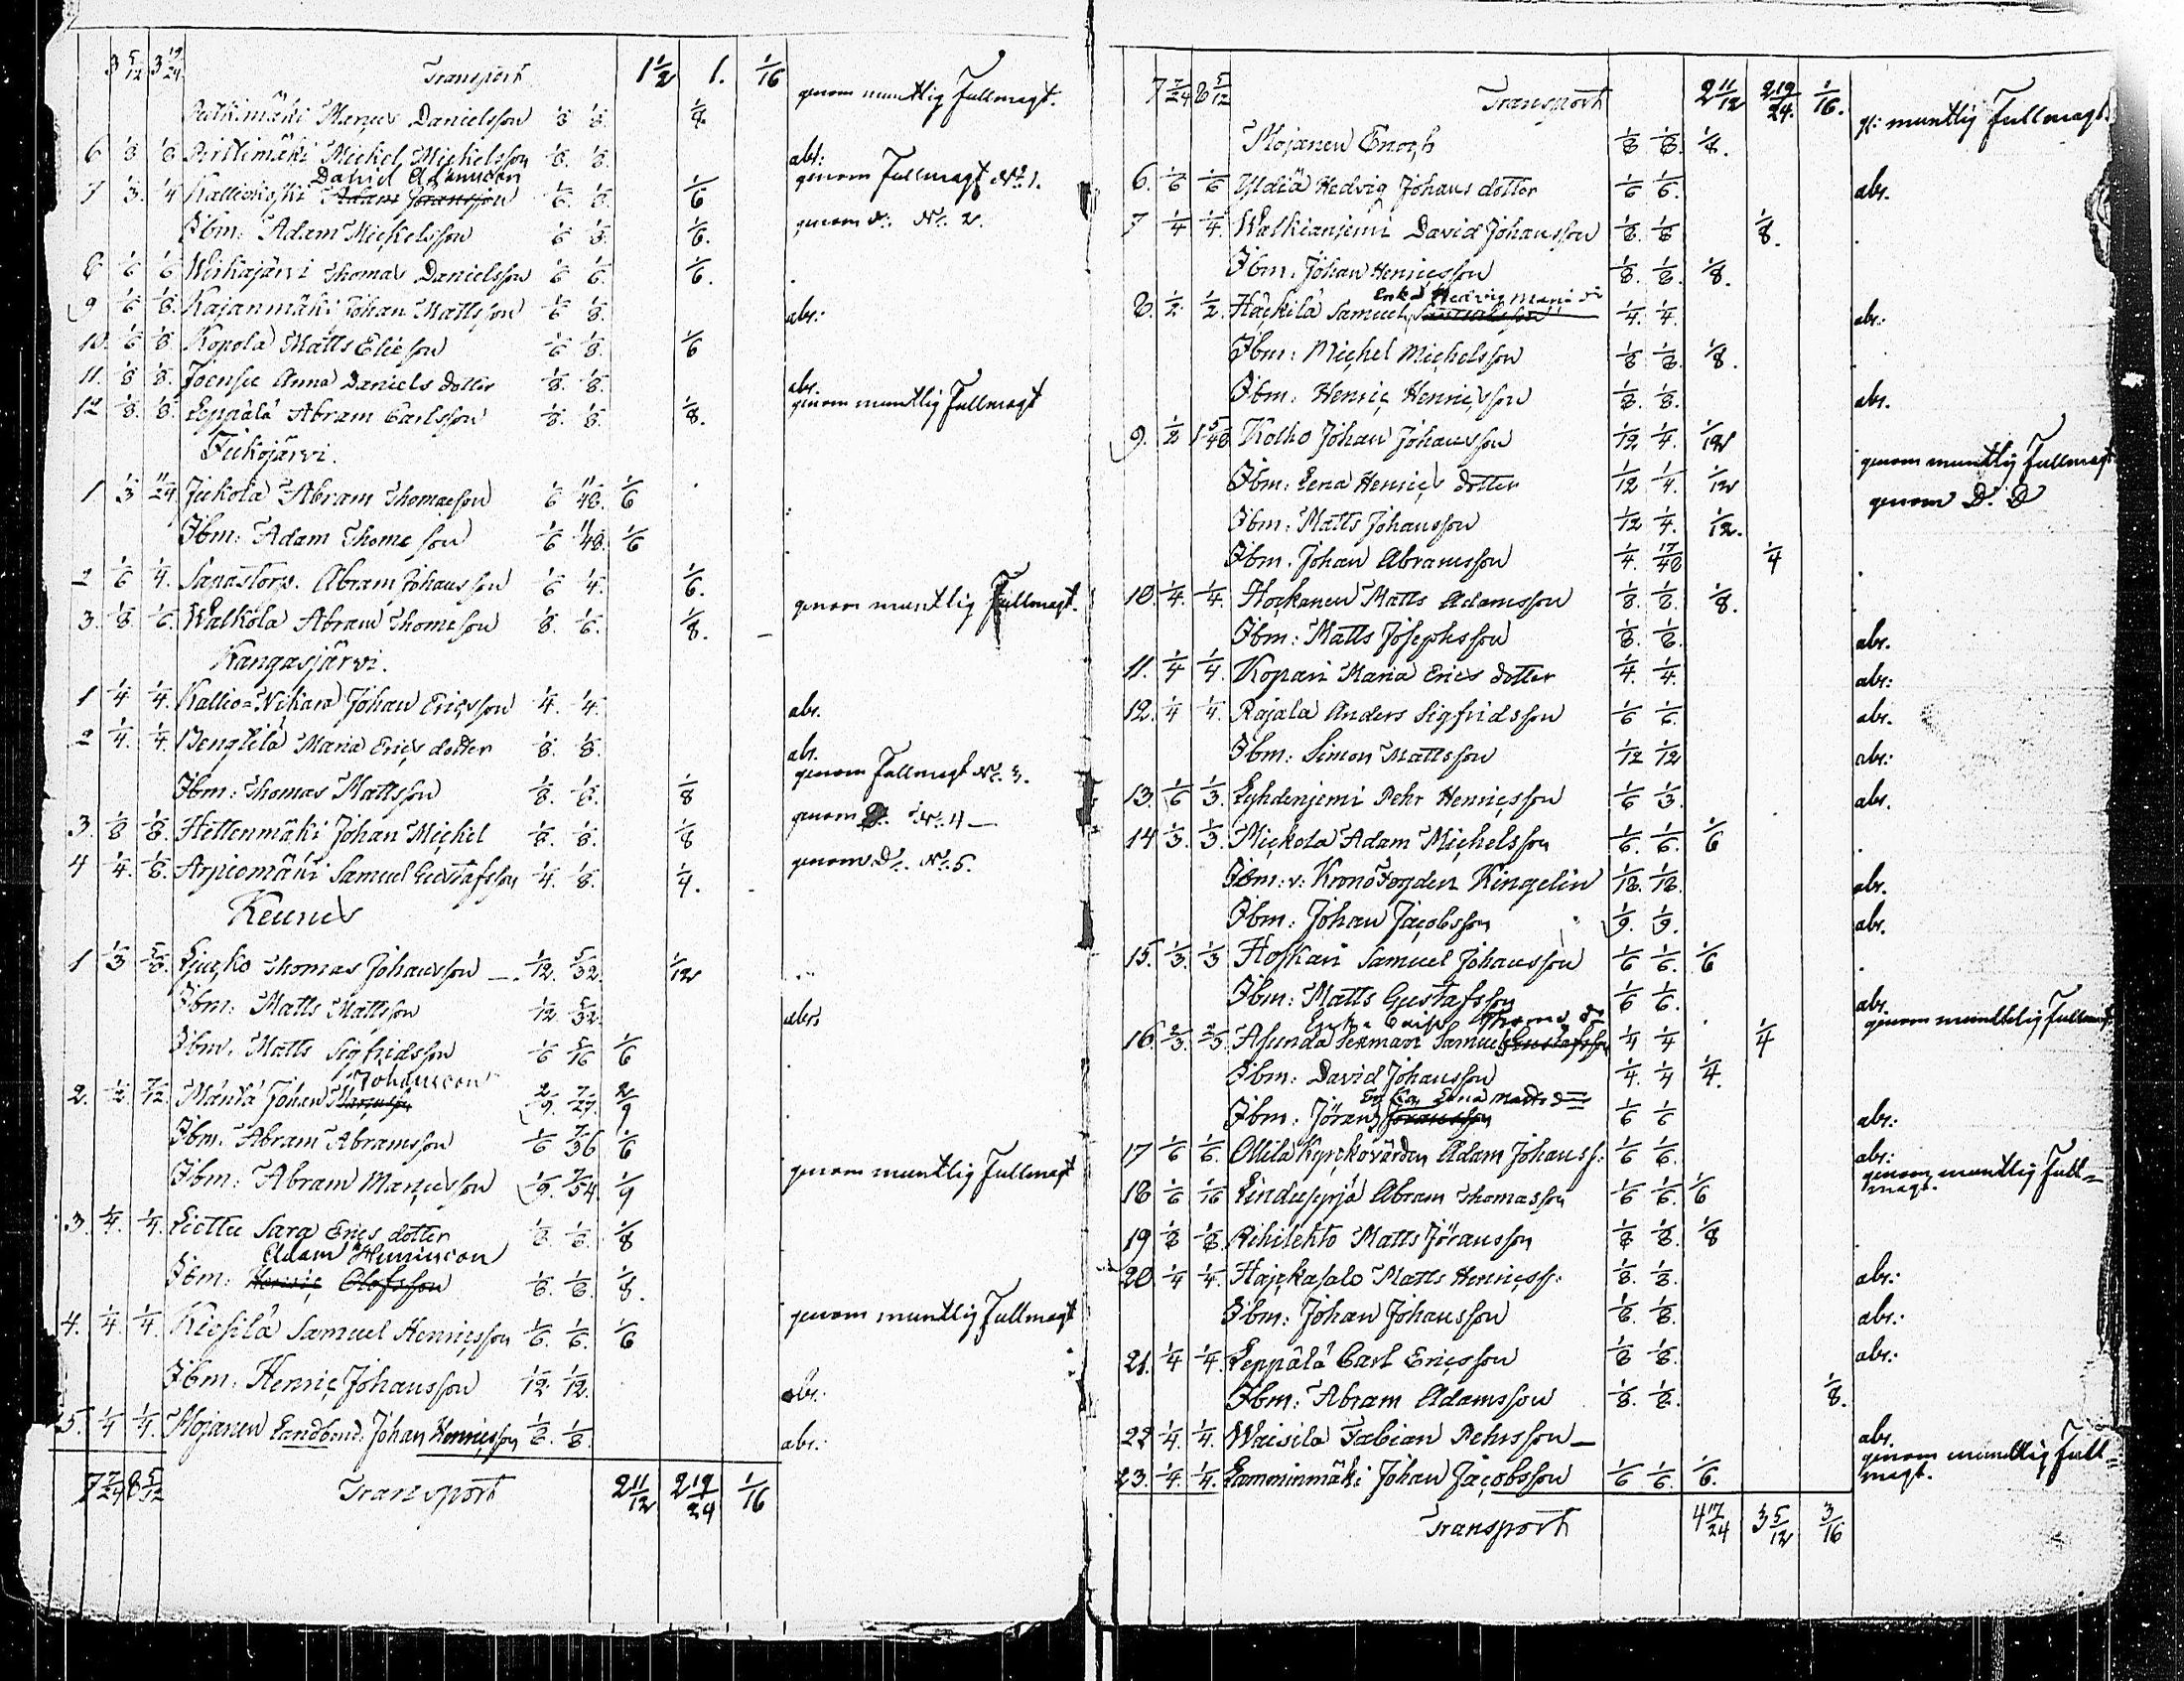 3 5/12 3 19/24 Transport 1 1/2 1. 1/16
Marcus Danielsson 1/8 1/8. 1/8. genom muntlig Fullmagt.
6 1/8 1/8 Perttimäki Michel Michelsson 1/8. 1/8. abs:
David Adamsson
7 1/3. 1/4 Kalliokoski Adam Göransson 1/6. 1/8. 1/6 genom Fullmagt No. 1.
Ibm: Adam Michelsson 1/6 1/8. 1/6. genom d:o No. 2.
8 1/6 1/6 Wirkajärvi Thomas Danielsson 1/6 1/6. 1/6.
9 1/6 1/8. Kajanmäki Johan Mattsson 1/6 1/8. abs:
10. 1/6 1/8 Kopola Matts Elieson 1/6 1/8. 1/6
11. 1/8 1/8. Joensu Anna Daniels dotter 1/8. 1/8. abs.
12 1/8. 1/8. Leppälä Abram Carlsson 1/8. 1/8. 1/8. genom muntlig Fullmagt
Jukojärvi.
1 1/3 11/24 Jukola Abram Thomasson 1/6 11/48. 1/6
Ibm: Adam Thome son 1/6 11/48. 1/6
2 1/6 1/4. Sanastorp. Abram Johansson 1/6 1/4. 1/6.
3. 1/8. 1/6. Walkola Abram Thomeson 1/8. 1/6. 1/8. genom muntlig Fullmagt.
Kangasjärvi.
1 1/4 1/4. Kallio-Nikara Johan Ericsson 1/4. 1/4. abs.
2 1/4. 1/4. Bengtilä Maria Erics dotter 1/8. 1/8. abs.
Ibm: Thomas Mattsson 1/8. 1/8. 1/8 genom Fullmagt No. 3.
3. 1/8 1/8. Hettenmäki Johan Michel 1/8. 1/8. 1/8 genom D:o No. 4
4 1/4. 1/8. Arpiomäki Samuel Gustafsson 1/4. 1/8. 1/4. genom D:o No. 5.
Keunes
1 1/3 5/8. Ljucko Thomas Johansson 1/12. 5/32. 1/12
Ibm: Matts Mattsson 1/12. 5/32. abs
Ibm. Matts Sigfridsson 1/6 5/16 1/6
Johansson
2. 1/2 7/12. Mantä Johan Marcusson 2/9. 7/27. 2/9
Ibm. Abram Abramsson 1/6 7/36 1/6
Ibm: Abram Marcusson 1/9. 7/54. 1/9 genom muntlig Fullmagt
3. 1/4. 1/4. Liettu Sara Erics dotter 1/8. 1/8. 1/8
Adam Henricson
Ibm: Henric Olofsson 1/8. 1/8. 1/8.
4. 1/4. 1/4. Kiesilä Samuel Henricsson 1/6. 1/6. 1/6 genom muntlig Fullmagt
Ibm: Henric Johansson 1/12. 1/12. abs:
5. 1/4 1/4. Mojanen Landbond. Johan Henricsson 1/8. 1/8. abs:
7 7/24 8 5/12 Transport 2 11/12 2 19/24 1/16
7 7/24 8 5/12 Transport 2 11/12 2 19/24. 1/16.
Mojanen Enoch 1/8 1/8. 1/8. g: muntlig Fullmagt.
6. 1/6 1/6 Yldiä Hedvig Johans dotter 1/6 1/6. abs.
7 1/4 1/4. Walkianiemi David Johansson 1/8. 1/8 1/8.
Ibm: Johan Henricsson 1/8. 1/8. 1/8.
Enka Hedvig Maria
8. 1/2 1/2. Häckilä Samuel Samuelsson 1/4. 1/4. abs:
Ibm: Michel Michelsson 1/8 1/8. 1/8.
Ibm: Henric Henricsson 1/8. 1/8. abs.
9. 1/2 1 5/48 Kolho Johan Johansson 1/12 1/4. 1/12
Ibm: Lena Henrics dotter 1/12 1/4. 1/12 genom muntlig Fullmagt
Ibm: Matts Johansson 1/12 1/4. 1/12. genom D:o D
Ibm. Johan Abramsson 1/4. 17/48 1/4
10. 1/4. 1/4. Hockanen Matts Adamsson 1/8. 1/8. 1/8.
Ibm: Matts Josephsson 1/8. 1/8. abs.
11. 1/4 1/4. Kopari Maria Erics dotter 1/4. 1/4. abs:
12. 1/4 1/4. Rajala Anders Sigfridsson 1/6 1/6. abs.
Ibm: Simon Mattsson 1/12 1/12 abs:
13. 1/6 1/3. Lyhdenjemi Pehr Henricsson 1/6 1/3. abs.
14 1/3 1/3. Mickola Adam Michelsson 1/6. 1/6. 1/6
Ibm: v: Kronofogden Ringelin 1/18. 1/18. abs.
Ibm: Johan Jacobsson 1/9. 1/9. abs.
15. 1/3. 1/3 Hoskari Samuel Johansson 1/6 1/6. 1/6
Ibm: Matts Gustafsson 1/6 1/6. abs.
Enka Caisa Thoma d:r
16. 2/3. 2/3. Asunda Perman Samuel Gustafsson 1/4 1/4 1/4 genom mundtlig Fullmagt
Ibm: David Johansson 1/4. 1/4 1/4.
Lena Matts d:r
Ibm: Jöran Johansson 1/6 1/6 abs:
17 1/6 1/6. Ollila Kyrckovärden Adam Johanss: 1/6 1/6. abs:
18 1/6 1/16 Linduperjä Abram Thomasson 1/6 1/6. 1/6 genom muntlig Full=
magt.
19 1/8 1/8. Rihilehto Matts Jöransson 1/8 1/8. 1/8
20. 1/4 1/4. Hajckasalo Matts Henricss: 1/8. 1/8. abs:
Ibm: Johan Johansson 1/8. 1/8. abs:
21. 1/4 1/4. Leppälä Carl Ericsson 1/8 1/8. abs:
Ibm: Abram Adamsson 1/8. 1/8. 1/8.
22 1/4. 1/4. Waisila Fabian Pehrsson abs.
23. 1/4. 1/4. Lamminmäki Johan Jacobsson 1/6 1/6. 1/6. genom mundtlig Full=
magt.
Transport 4 17/24 3 5/12 3/16